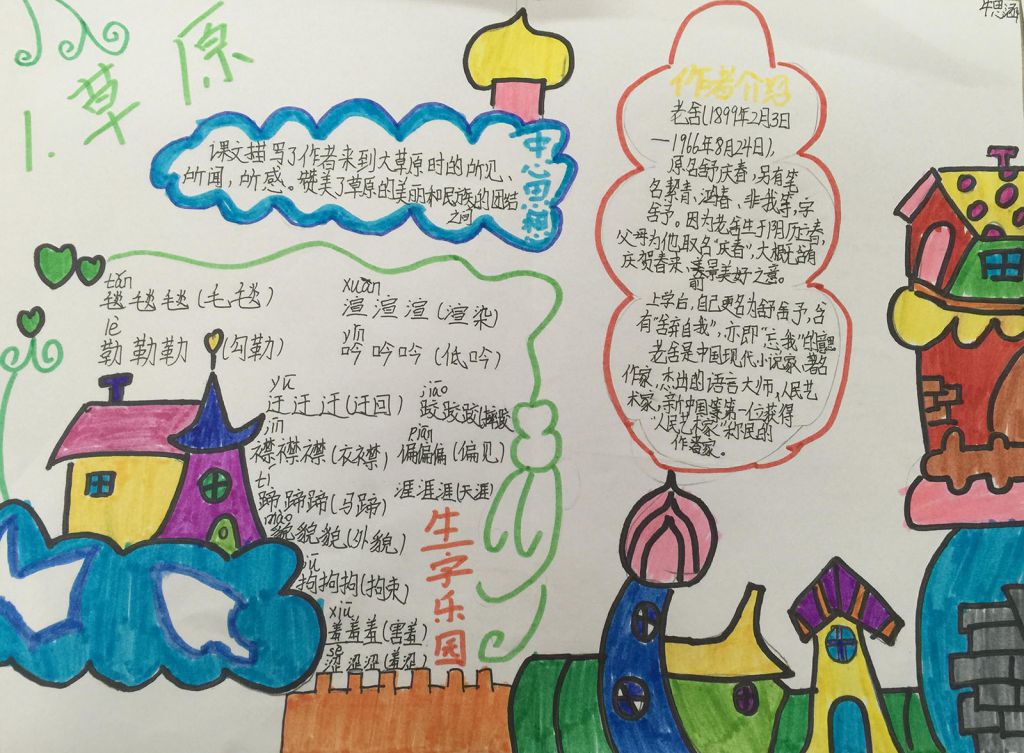 牛思涵
1.草原
中心思想
课文描写了作者来到大草原时的所见、
所闻，所感。赞美了草原的美丽和民族的团结
之间
作者介绍
老舍(1899年2月3日
—1966年8月24日)，
原名舒庆春，另有笔
名絜青、鸿春、非我等，字
舍予。因为老舍生于阴历立春，
父母为他取名"庆春"，大概含有
庆贺春来、前景美好之意。
上学后，自己更名为舒舍予，含
有"舍弃自我"，亦即"忘我"的意思
老舍是中国现代小说家、著名
作家，杰出的语言大师、人民艺
术家，新中国第一位获得
"人民艺术家"称号的
作家。
tǎn
毯毯毯(毛毯)
xuàn
渲渲渲(渲染)
lè
勒勒勒(勾勒)
yín
吟吟吟(低吟)
yū
迂迂迂(迂回)
jiāo
跤跤跤(摔跤)
jīn
襟襟襟(衣襟)
piān
偏偏偏(偏见)
tí
蹄蹄蹄(马蹄)
涯涯涯(天涯)
mào
貌貌貌(外貌)
jū
拘拘拘(拘束)
xiū
羞羞羞(害羞)
sè
涩涩涩(羞涩)
生字乐园